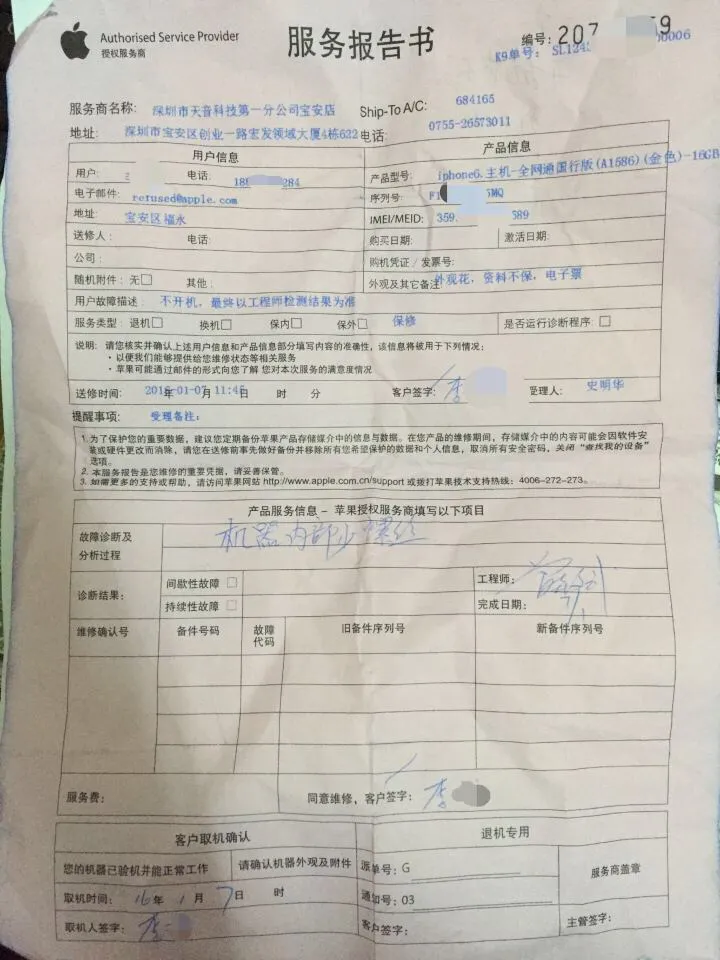 Authorised Service Provider
授权服务商
服务报告书
编号: 207 59
K9单号: SL124 0006
服务商名称: 深圳市天音科技第一分公司宝安店 Ship-To A/C: 684165
地址: 深圳市宝安区创业一路宏发领域大厦4栋622 电话: 0755-26573011
用户信息 产品信息
用户: 电话: 18 284 产品型号: iphone6.主机-全网通国行版(A1586)(金色)-16GB
电子邮件: refused@apple.com 序列号: F1 MQ
地址: 宝安区福永 IMEI/MEID: 359. 589
送修人: 电话: 购买日期: 激活日期:
公司: 购机凭证/发票号:
随机附件: 无□ 其他: 外观及其它备注: 外观花，资料不保，电子票
用户故障描述: 不开机，最终以工程师检测结果为准
服务类型: 退机□ 换机□ 保内□ 保外□ 保修 是否运行诊断程序: □
说明: 请您核实并确认上述用户信息和产品信息部分填写内容的准确性，该信息将被用于下列情况:
• 以便我们能够提供给您维修状态等相关服务
• 苹果可能通过邮件的形式向您了解 您对本次服务的满意度情况
送修时间: 2016-01-07 11:45 年 月 日 时 分 客户签字: 李 受理人: 史明华
提醒事项: 受理备注:
1. 为了保护您的重要数据，建议您定期备份苹果产品存储媒介中的信息与数据。在您产品的维修期间，存储媒介中的内容可能会因软件安
装或硬件更改而消除，请您在送修前事先做好备份并移除所有您希望保护的数据和个人信息，取消所有安全密码，关闭“查找我的设备”
选项。
2. 本服务报告是您维修的重要凭据，请妥善保管。
3. 如需更多的支持或帮助，请访问苹果网站 http://www.apple.com.cn/support 或拨打苹果技术支持热线: 4006-272-273。
产品服务信息 – 苹果授权服务商填写以下项目
故障诊断及
分析过程
机器内部少螺丝
诊断结果: 间歇性故障 □ 工程师:
持续性故障 □ 完成日期:
维修确认号 备件号码 故障代码 旧备件序列号 新备件序列号
服务费: 同意维修，客户签字: 李
客户取机确认 退机专用
您的机器已验机并能正常工作 请确认机器外观及附件 派单号: G 服务商盖章
取机时间: 16年 1月 7日 时 通知号: 03
取机人签字: 李 客户签字: 主管签字: